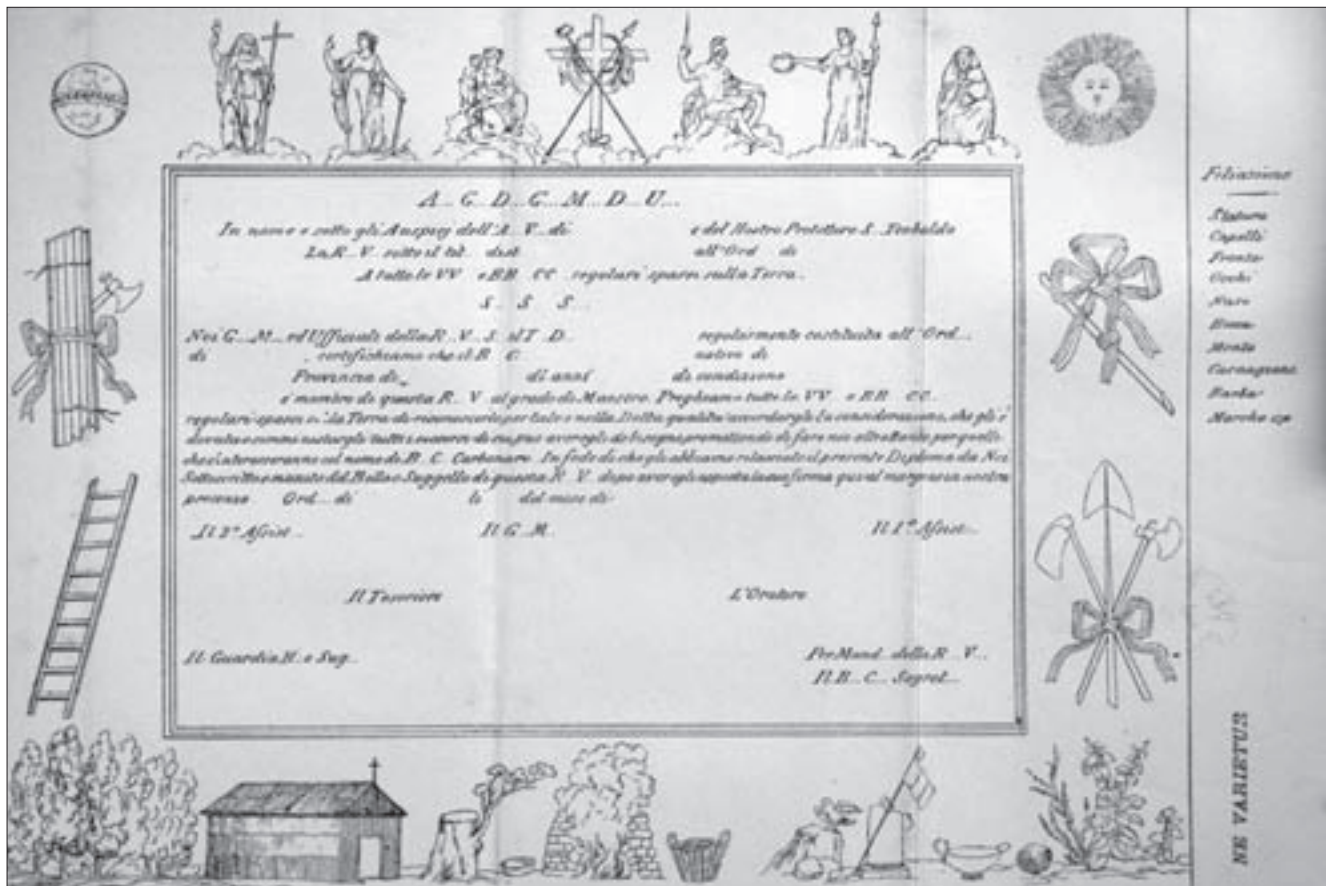 A... G... D... G... M... D... U...
In nome e sotto gli Auspicj dell'A... V... di e del Nostro Protettore S... Teobaldo
La R... V... sotto il tit... dist... all'Ord... di
A tutte le VV... e BB... CC... regolari sparsi sulla Terra.
S... S... S...
Noi G... M... ed Uffiziali della R... V... S... il T... D... regolarmente costituita all'Ord...
di certifichiamo che il B... C... nativo di
Provincia di di anni di condizione
è membro di questa R... V... al grado di Maestro. Preghiamo tutte le VV... e BB... CC...
regolari sparsi la Terra di riconoscerlo per tale e nella Detta qualità accordargli la considerazione, che gli è
dovuta tutti i soccorsi di cui può avere bisogno promettendo di fare noi altrettanto per quelli
che col nome di B... C... Carbonaro. In fede di che gli abbiamo rilasciato il presente Diploma da Noi
Sottoscritto e munito del Bollo e Suggello di questa R... V... dopo avergli la sua firma qui al margine in nostra
presenza Ord... di li del mese di
Il 2º Assist... Il G... M... Il 1º Assist...
Il Tesoriere L'Oratore
Il Guardia B... e Sug... Per Mand... della R... V...
Il B... C... Segret...
Filiazione
Statura
Capelli
Fronte
Occhi
Naso
Bocca
Mento
Carnagione
Barba
Marche
NE VARIETUR